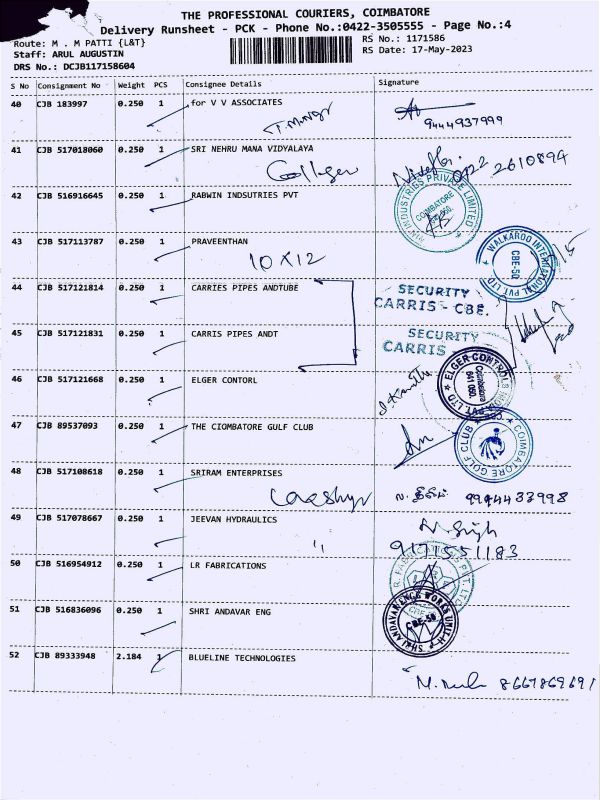 THE PROFESSIONAL COURIERS, COIMBATORE
Delivery Runsheet - PCK - Phone No.:0422-3505555 - Page No.:4
Route: M . M PATTI {L&T}
RS No.: 1171586
Staff: ARUL AUGUSTIN
RS Date: 17-May-2023
DRS No.: DCJB117158604
S No Consignment No Weight PCS Consignee Details Signature
40 CJB 183997 0.250 1 for V V ASSOCIATES
9444937999
41 CJB 517018060 0.250 1 SRI NEHRU MANA VIDYALAYA
College
0422 2610894
42 CJB 516916645 0.250 1 RABWIN INDSUTRIES PVT
INDUSTRIES PRIVATE LIMITED
COIMBATORE
43 CJB 517113787 0.250 1 PRAVEENTHAN
10 X 12
WALKAROO INTERNATIONAL PVT LTD
CBE-50
44 CJB 517121814 0.250 1 CARRIES PIPES ANDTUBE
SECURITY
CARRIS - CBE.
45 CJB 517121831 0.250 1 CARRIS PIPES ANDT
SECURITY
CARRIS
46 CJB 517121668 0.250 1 ELGER CONTORL
ELGER CONTROLS
PVT. LTD
Coimbatore
641 050.
47 CJB 89537093 0.250 1 THE CIOMBATORE GULF CLUB
COIMBATORE GOLF CLUB
48 CJB 517108618 0.250 1 SRIRAM ENTERPRISES
9994433998
49 CJB 517078667 0.250 1 JEEVAN HYDRAULICS
"
N. Singh
9171551183
50 CJB 516954912 0.250 1 LR FABRICATIONS
51 CJB 516836096 0.250 1 SHRI ANDAVAR ENG
SHRI ANDAVAR ENGG WORKS UNIT-II
CBE-50
52 CJB 89333948 2.184 1 BLUELINE TECHNOLOGIES
8667869691